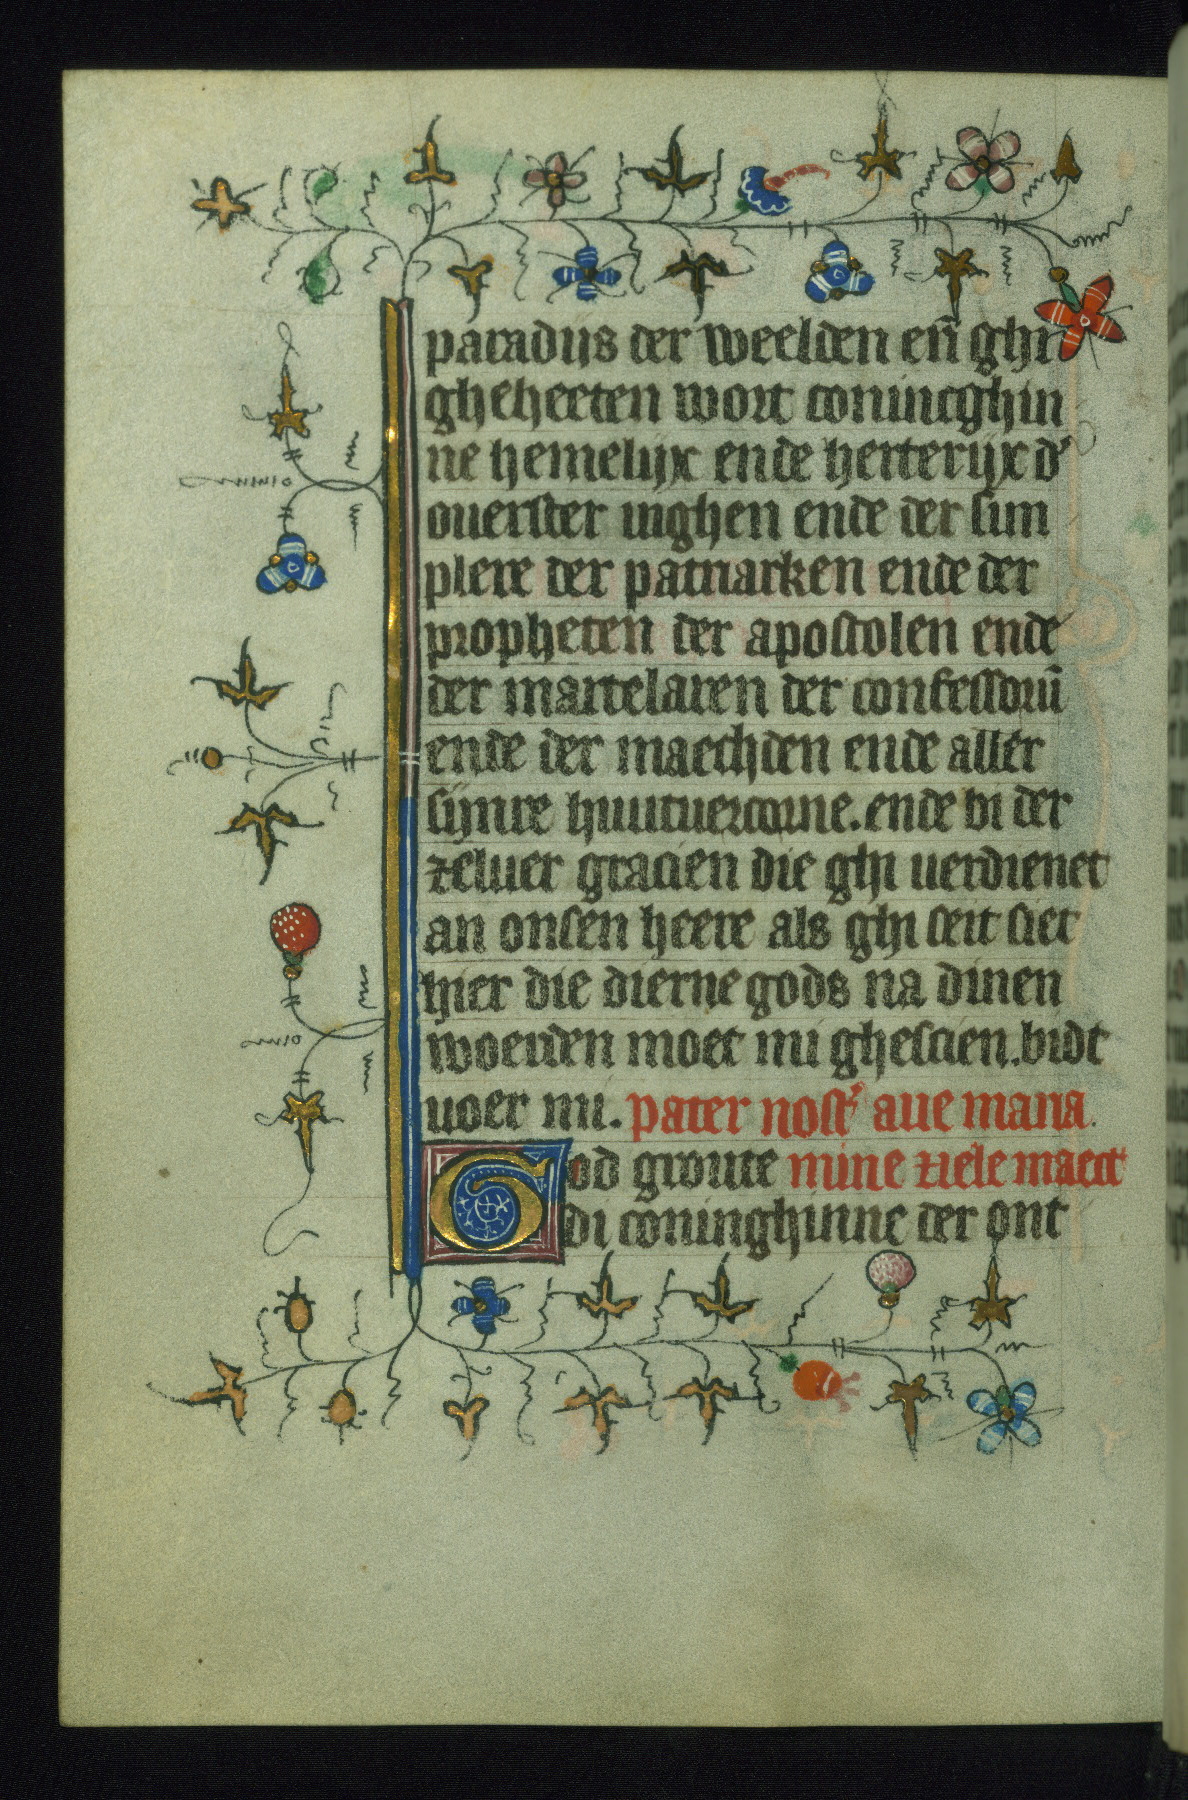 paradijs der weelden en̄ ghi
gheheeten wort conincghin
ne hemelijx ende herterijx d'
ouerster inghen ende der sim
plere der patriarken ende der
propheten der apostolen ende
der martelaren der confessorū
ende der maechden ende aller
sijnre huutuercorne. ende bi der
zeluer gracien die ghi uerdienet
an onsen heere als ghi seit siet
hier die dierne gods na dinen
woerden moet mi ghescien. bidt
uoer mi. pater nost' aue maria.
God groute mine ziele maect
di coninghinne der ont